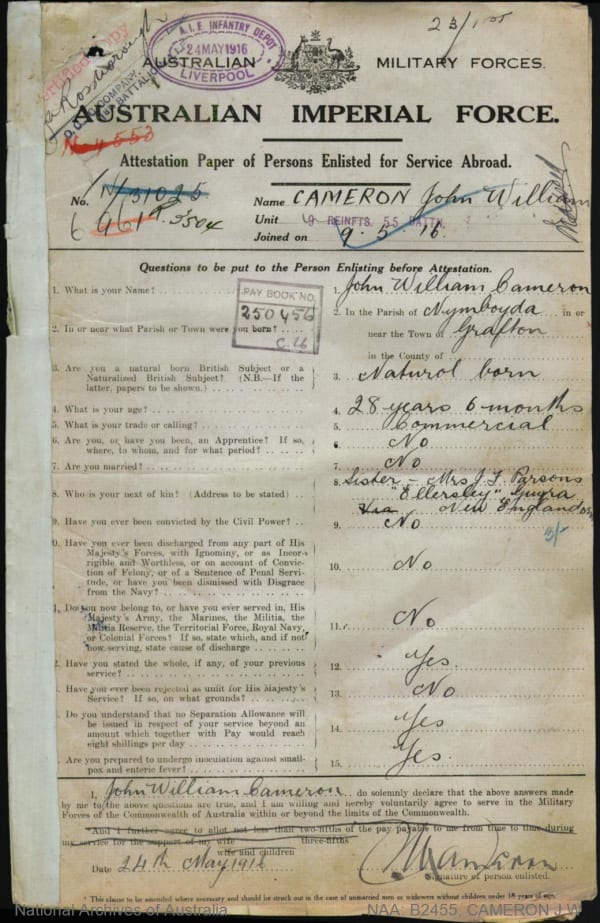 23/1
A.I.E. INFANTRY DEPOT
24 MAY 1916
LIVERPOOL
AUSTRALIAN MILITARY FORCES.
COMPANY
BATTALION
AUSTRALIAN IMPERIAL FORCE.
No 4553
Attestation Paper of Persons Enlisted for Service Abroad.
No. N/31025
6461
3504
Name CAMERON John William
Unit 9 REINFTS. 55 BATTN.
Joined on 9. 5. 16.
Questions to be put to the Person Enlisting before Attestation.
PAY BOOK NO.
250456
1. What is your Name? 1. John William Cameron
2. In or near what Parish or Town were you born? 2. In the Parish of Nymboyda in or
near the Town of Grafton
in the County of
3. Are you a natural born British Subject or a
Naturalized British Subject? (N.B.—If the
latter, papers to be shown.) 3. Natural born
4. What is your age? 4. 28 years 6 months
5. What is your trade or calling? 5. Commercial
6. Are you, or have you been, an Apprentice? If so,
where, to whom, and for what period? 6. No
7. Are you married? 7. No
8. Who is your next of kin? (Address to be stated) 8. Sister - Mrs J. F. Parsons
"Ellersley" Guyra
Via New England
5/-
9. Have you ever been convicted by the Civil Power? 9. No
0. Have you ever been discharged from any part of His
Majesty's Forces, with Ignominy, or as Incor-
rigible and Worthless, or on account of Convic-
tion of Felony, or of a Sentence of Penal Servi-
tude, or have you been dismissed with Disgrace
from the Navy? 10. No
1. Do you now belong to, or have you ever served in, His
Majesty's Army, the Marines, the Militia, the
Militia Reserve, the Territorial Force, Royal Navy,
or Colonial Forces? If so, state which, and if not
now serving, state cause of discharge 11. No
2. Have you stated the whole, if any, of your previous
service? 12. Yes.
Have you ever been rejected as unfit for His Majesty's
Service? If so, on what grounds? 13. No
Do you understand that no Separation Allowance will
be issued in respect of your service beyond an
amount which together with Pay would reach
eight shillings per day 14. Yes
Are you prepared to undergo inoculation against small-
pox and enteric fever? 15. Yes.
I, John William Cameron do solemnly declare that the above answers made
by me to the above questions are true, and I am willing and hereby voluntarily agree to serve in the Military
Forces of the Commonwealth of Australia within or beyond the limits of the Commonwealth.
*And I further agree to allot not less than two-fifths of the pay payable to me from time to time during
my service for the support of my wife three-fifths
wife and children
Date 24th May 1916 Signature of person enlisted.
* This clause to be amended where necessary and should be struck out in the case of unmarried men or widowers without children under 18 years of age.
National Archives of Australia NAA: B2455, CAMERON J W